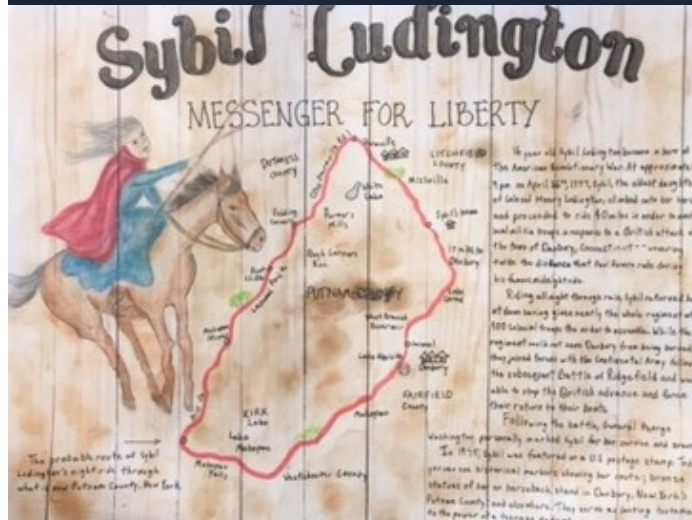 Sybil Ludington
MESSENGER FOR LIBERTY
DUTCHESS
County
LITCHFIELD
COUNTY
White
Lake
Sybil's home
Mills
PUTNAM COUNTY
West Branch
Reservoir
Danbury
FAIRFIELD
County
KIRK
Lake
Lake
Mahopac
Mahopac
Mahopac
Falls
Westchester County
The probable route of Sybil
Ludington's night ride through
what is now Putnam County, New York
16 year old Sybil Ludington became a hero of
the American Revolutionary War. At approximately
9 pm on April 26th, 1777, Sybil, the oldest daught
of Colonel Henry Ludington, climbed onto her horse
and proceeded to ride 40 miles in order to
troops in response to a British attack on
the town of Danbury, Connecticut covering
the distance that Paul Revere rode during
his famous midnight ride.
Riding all night through rain, Sybil returned h
at dawn having given nearly the whole regiment of
400 Colonial troops the order to assemble. While the
regiment could not save Danbury from being burned
they joined forces with the Continental Army follow
the subsequent Battle of Ridgefield and were
able to stop the British advance and force
their return to their boats.
Following the battle, General George
Washington personally thanked Sybil for her service and
In 1975, Sybil was featured on a U.S postage stamp.
historical markers showing her route; bronze
statues of her on horseback stand in Danbury, New York's
Putnam County and elsewhere. They serve as lasting
to the power of a teenage